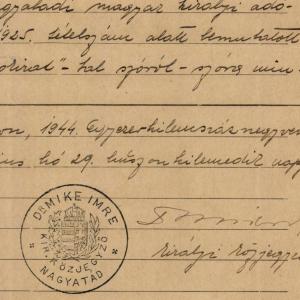 magyar királyi adó-
1925. tételszám alatt bemutatott
"-hal szóról-szóra
1944. Egyezerkilencszáz negyven
hó 29. huszonkilencedik nap
Dr MIKE IMRE
KIR. KÖZJEGYZŐ
NAGYATÁD
királyi közjegyző